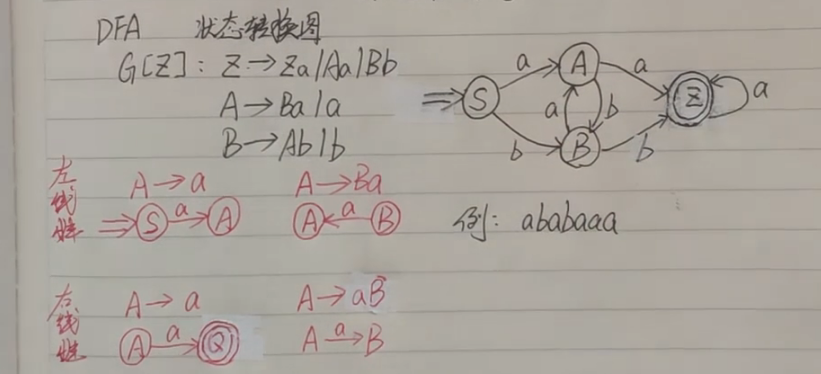 DFA 状态转换图
G[Z]: Z→Za|Aa|Bb
A→Ba|a
B→Ab|b
⇒S a A a Z a
a b
b B b
左线性
A→a A→Ba
⇒S a→A A←a B
例: ababaaa
右线性
A→a A→aB
A a→Q A a→B